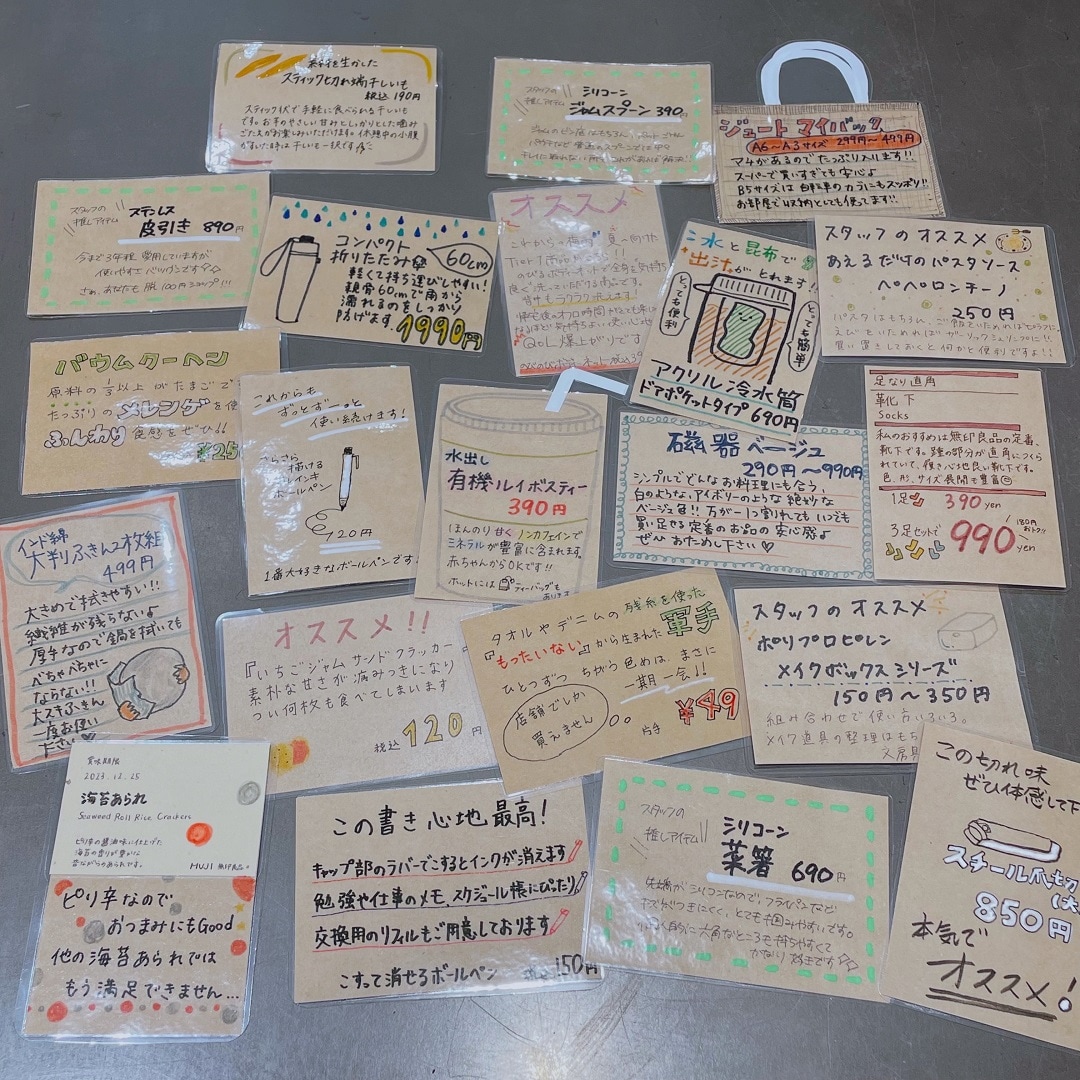 素材を生かした
スティック切れ端干しいも
税込 190円
スティック状で手軽に食べられる干しいも
です。お芋のやさしい甘みとしっかりとした噛み
ごたえがお楽しみいただけます。休憩中の小腹
がすいた時は干しいも一択です
スタッフの
推しアイテム
シリコーン
ジャムスプーン 390円
ジャムのビン底はもちろん、
キレイに取れない所
ジュート マイバック
A6〜A3サイズ 299円〜499円
マチがあるのでたっぷり入ります!!
スーパーで買いすぎても安心よ
B5サイズは自転車のカゴにもスッポリ!!
お部屋で収納としても使ってます!!
スタッフの
推しアイテム
ステンレス
皮引き 890円
今まで3年程愛用していますが
使いやすさバツグンです
さぁ、あなたも脱100円ショップ!!!
コンパクト
折りたたみ傘
60cm
軽くて持ち運びしやすい!
親骨60cmで雨から
濡れるのをしっかり
防げます
1990円
オススメ
これからの梅雨、夏へ向けた
のびるボディタオルで全身を気持ち
良く洗っていただける商品です。
背中もラクラク洗えます!
帰宅後のお フロ時間がとても楽しく
なるほど気持ちよい使い心地
QOL爆上がりです
水と昆布で
出汁がとれます!!
とっても便利
とっても簡単
アクリル冷水筒
ドアポケットタイプ 690円
スタッフのオススメ
あえるだけのパスタソース
ペペロンチーノ
250円
パスタはもちろん、ご飯をいためればピラフに。
えびをいためればガーリックシュリンプに!!
買い置きしておくと何かと便利ですよ!!
バウムクーヘン
原料の1/3以上がたまごで
たっぷりのメレンゲを使
ふんわり食感をぜひ!!
¥25
これからも
ずっとずーっと
使い続けます!
さらさら
描ける
ゲルインキ
ボールペン
120円
1番大好きなボールペンです。
水出し
有機ルイボスティー
390円
ほんのり甘くノンカフェインで
ミネラルが豊富に含まれます。
赤ちゃんからOKです!!
ホットには ティーバッグも
あります
磁器ベージュ
290円〜990円
シンプルでどんなお料理にも合う、
白のような、アイボリーのような絶妙な
ベージュ色!! 万が一1つ割れてもいつでも
買い足せる定番のお品の安心感よ
ぜひおためし下さい♡
足なり直角
靴下
Socks
私のおすすめは無印良品の定番、
靴下です。踵の部分が直角につくら
れていて、履き心地良い靴下です。
色、形、サイズ展開も豊富☺
1足 390 yen
3足セットで
990 yen
180円
おトク
インド綿
大判ふきん2枚組
499円
大きめで拭きやすい!!
繊維が残らないよ
厚手なので全部を拭いても
べちゃべちゃに
ならない!!
大スキふきん
一度お使い
下さい♡
オススメ!!
『いちごジャムサンドクラッカー』
素朴な甘さが病みつきになり
つい何枚も食べてしまいます
税込 120円
タオルやデニムの残糸を使った
『もったいない』から生まれた軍手
ひとつずつちがう色めは、まさに
一期一会!!
店舗でしか
買えません
片手
¥49
スタッフのオススメ
ポリプロピレン
メイクボックスシリーズ
150円〜350円
組み合わせで使い方いろいろ。
メイク道具の整理はもち
文房具
賞味期限
2023.12.25
海苔あられ
Seaweed Roll Rice Crackers
ピリ辛の醤油味に仕上げた
海苔の香りが豊かな
昔ながらのあられです。
MUJI 無印良品
ピリ辛なので
おつまみにもGood
他の海苔あられでは
もう満足できません…
この書き心地最高!
キャップ部のラバーでこするとインクが消えます
勉強や仕事のメモ、スケジュール帳にぴったり
交換用のリフィルもご用意しております
こすって消せるボールペン
150円
スタッフの
推しアイテム
シリコーン
菜箸 690円
先端がシリコンなので、フライパンなど
キズがつきにくく、とても掴みやすいです。
個人的に六角なところも持ちやすくて
かなり好きです
この切れ味
ぜひ体感して下
スチール爪切
850円
本気で
オススメ!